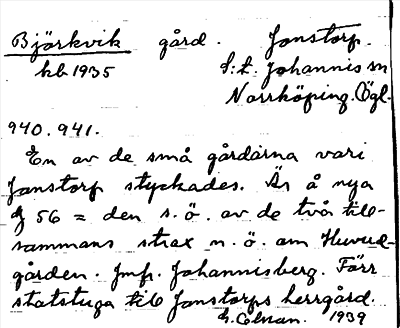 Björkvik gård. Jonstorp.
kb 1935 S:t. Johannis sn
Norrköping. Ögl.
940. 941.
En av de små gårdarna vari
Jonstorp styckades. Är å nya
56 = den s.ö. av de två till-
sammans strax n.ö. om Huvud-
gården. Jmfr. Johannisberg. Förr
statstuga till Jonstorps herrgård.
1939